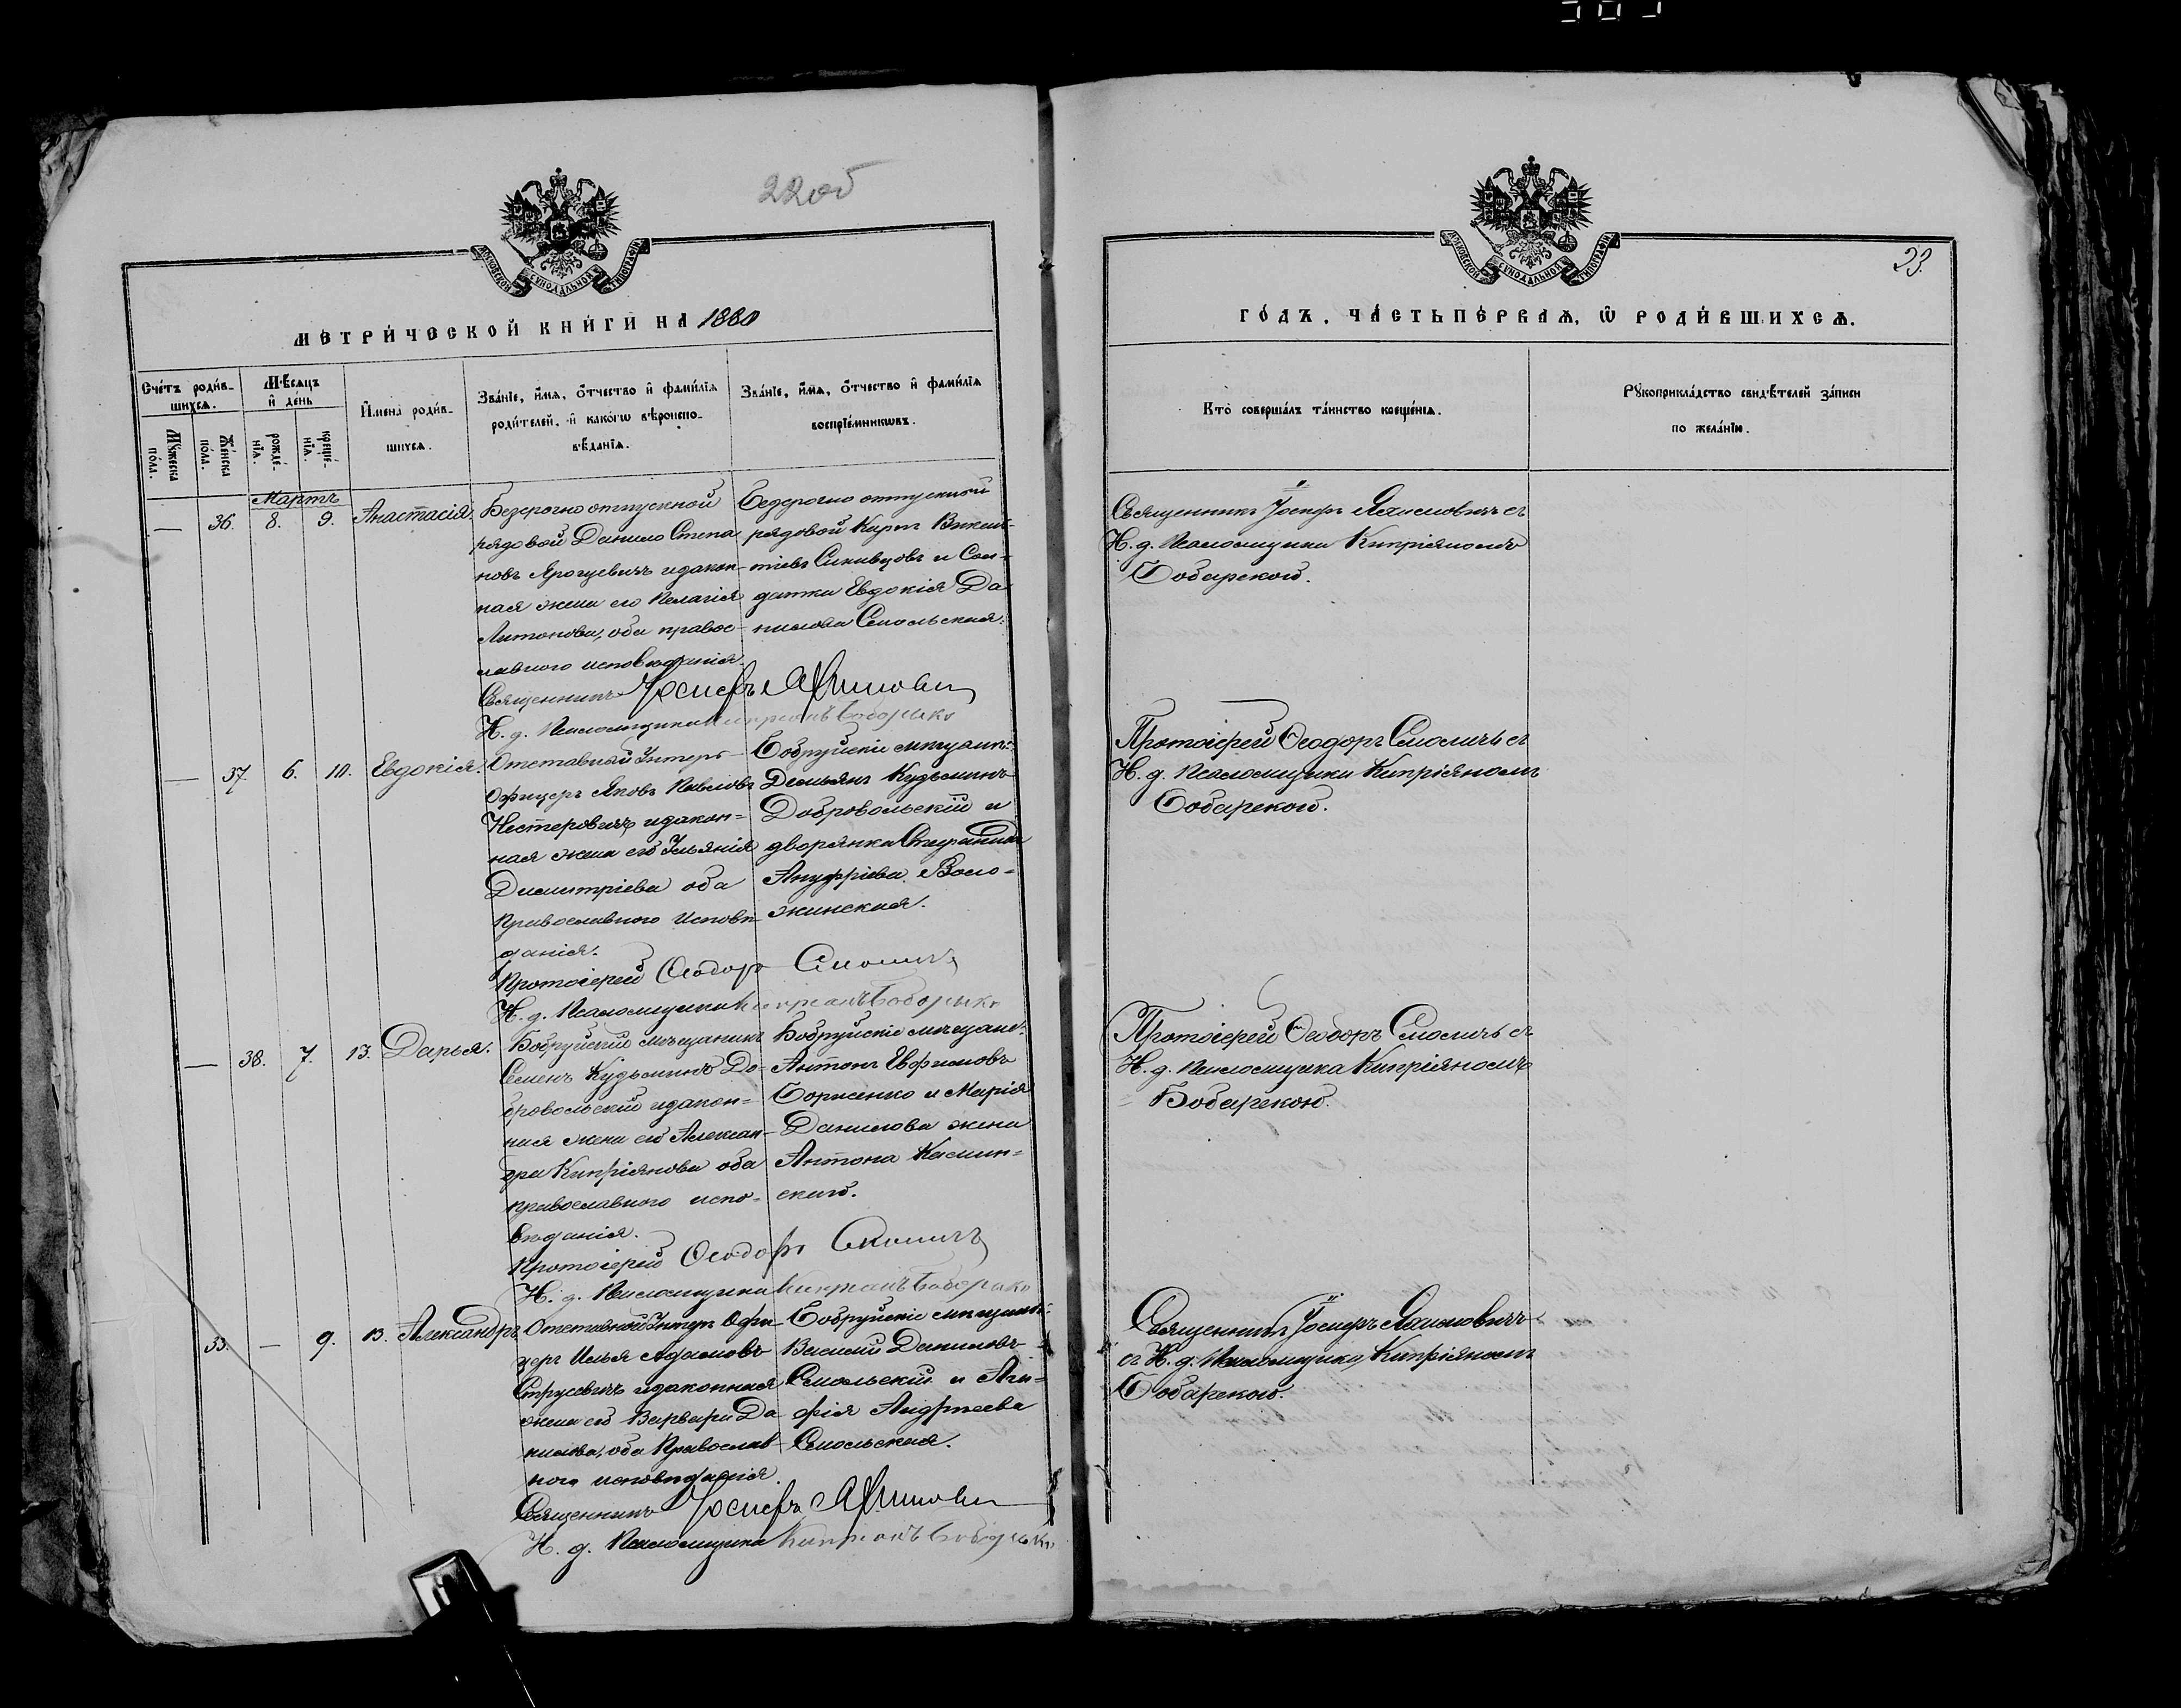 22об
МОСКОВСКОЙ СѴНОДАЛЬНОЙ ТИПОГРАФІИ
МЕТРИ́ЧЕСКОЙ КНИ́ГИ НА 1880
Сче́тъ роди́в-
шихсѧ.
Мꙋ́жеска
по́ла.
Же́нска
по́ла.
Мѣ́сѧцъ
и҆ де́нь
рожде́-
нїѧ.
креще́-
нїѧ.
И҆мена̀ роди́в-
шихсѧ.
Зва́нїе, и҆́мѧ, ѻ҆́тчество и҆ фами́лїѧ
роди́телей, и҆ како́гѡ вѣроиспо-
вѣ́данїѧ.
Зва́нїе, и҆́мѧ, ѻ҆́тчество и҆ фами́лїѧ
воспрїе́мникѡвъ.
Мартъ
— 36. 8. 9. Анастасія.
Безсрочно отпускной
рядовой Данило Степа
новъ Ярошевичъ и закон-
ная жена его Пелагія
Антонова, оба правос-
лавного исповѣданія.
Священникъ Іосифъ
Н. д. Псаломщика Кипріанъ
рядовой Карпъ Викен-
тіевъ и Сол-
датка Евдокія Да
нилова Смольская.
— 37. 6. 10. Евдокія.
Отставной Унтеръ-
Офицеръ Яковъ Павловъ
Нестеровичъ и закон=
ная жена его Ульянія
Димитріева оба
Православного Исповѣ-
данія.
Протоіерей Ѳеодоръ Смоличъ
Н. д. Псаломщика Кипріанъ
Бобруйскіе мѣщане:
Демьянъ Кузьминъ
Добровольскій и
дворянка Стефанида
Ануфріева Воло-
жинская.
— 38. 7. 13. Дарья.
Бобруйскій мѣщанинъ
Семенъ Кузьминъ До-
бровольскій и закон=
ная жена его Алексан-
дра Кипріянова оба
православного испо-
вѣданія.
Протоіерей Ѳеодоръ Смоличъ
Н. д. Псаломщика Кипріанъ
Бобруйскіе мѣщане:
Антонъ Евфимовъ
Борисенко и Марія
Данилова жена
Антона Камин=
скаго.
33. — 9. 13. Александръ
Отставной Унтеръ Офи-
церъ Илья Адамовъ
Струсевичъ и законная
жена его Варвара Да-
нилова, оба Православ-
ного исповѣданія.
Священникъ Іосифъ
Н. д. Псаломщика Кипріанъ
Бобруйскіе мѣщане:
Василій Даниловъ
Смольскій и Ага-
фія Андреева
Смольская.
23.
МОСКОВСКОЙ СѴНОДАЛЬНОЙ ТИПОГРАФІИ
ГО́ДЪ, ЧА́СТЬ ПЕ́РВАѦ, Ѽ РОДИ́ВШИХСѦ.
Кто̀ соверша́лъ та́инство креще́нїѧ.
Рꙋкоприкла́дство свидѣ́телей за́писи
по жела́нїю.
Священникъ Іосифъ съ
Н. д. Псаломщика Кипріяномъ
Протоіерей Ѳеодоръ Смоличъ съ
Н. д. Псаломщика Кипріяномъ
Протоіерей Ѳеодоръ Смоличъ съ
Н. д. Псаломщика Кипріяномъ
Священникъ Іосифъ
съ Н. д. Псаломщика Кипріяномъ